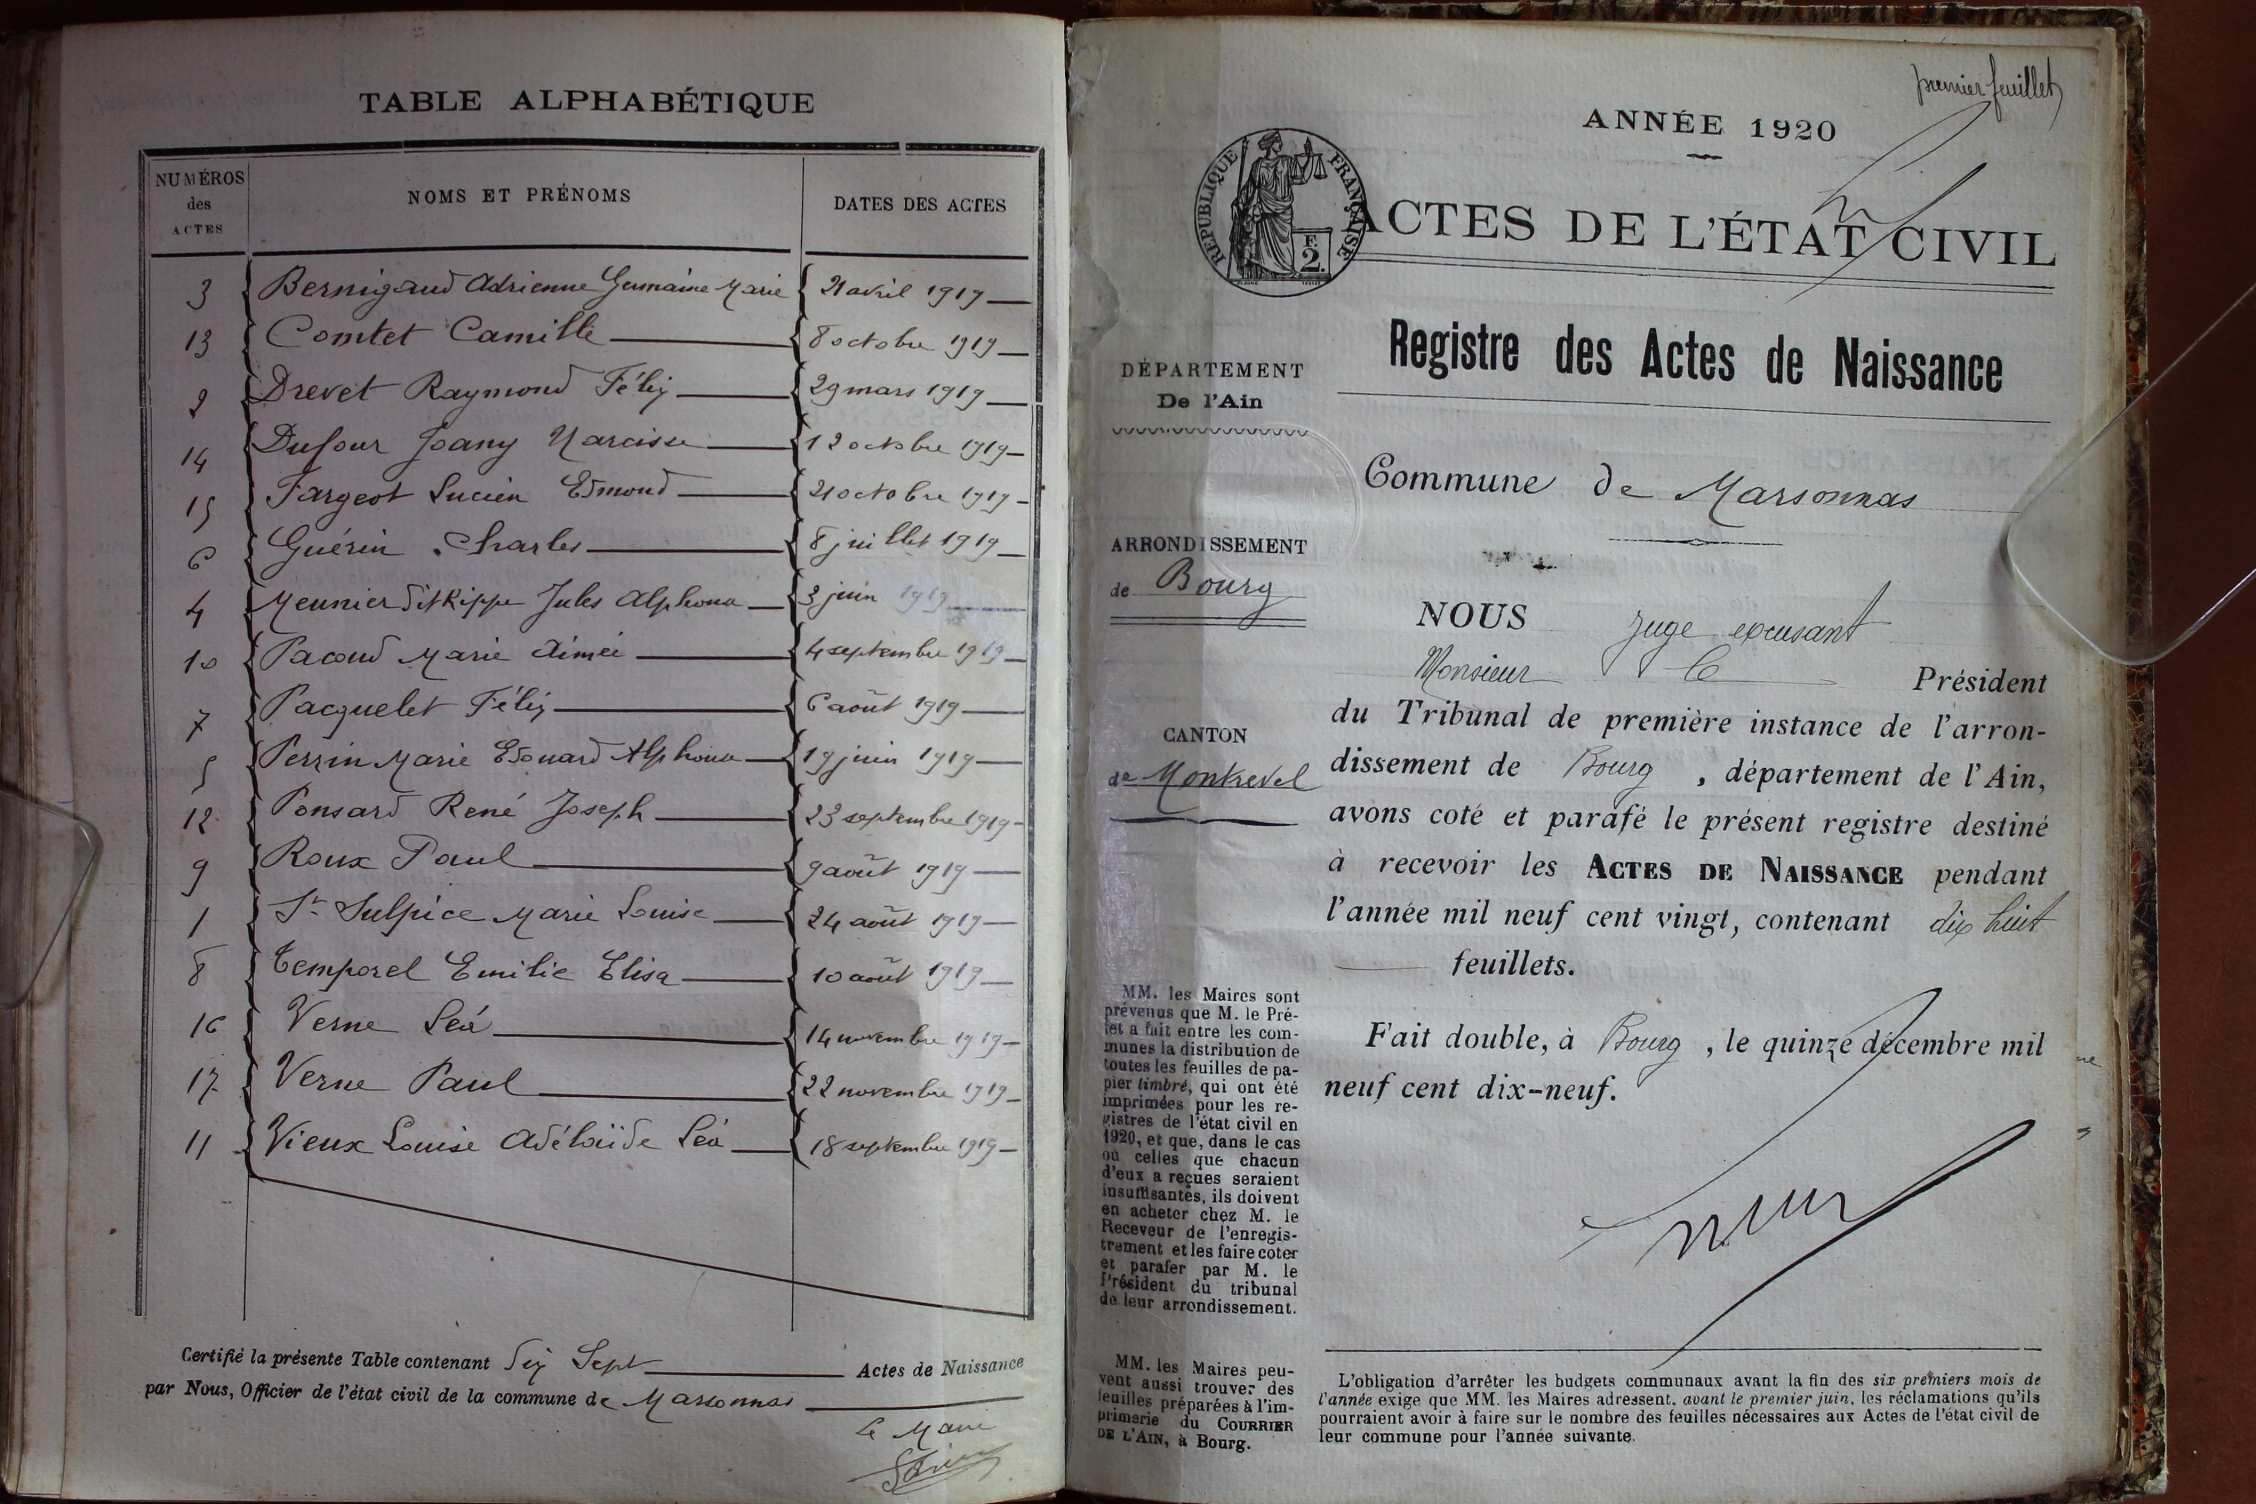 TABLE ALPHABÉTIQUE
NUMÉROS des ACTES NOMS ET PRÉNOMS DATES DES ACTES
3 Bernigaud Adrienne Germaine Marie 21 avril 1919
13 Comtet Camille 8 octobre 1919
2 Drevet Raymond Félix 29 mars 1919
14 Dufour Joany Narcisse 12 octobre 1919
15 Fargeot Lucien Edmond 21 octobre 1919
6 Guérin Charles 8 juillet 1919
4 Meunier dit Rippe Jules Alphonse 3 juin 1919
10 Pacoud Marie Aimée 4 septembre 1919
7 Pacquelet Félix 6 août 1919
5 Perrin Marie Edouard Alphonse 19 juin 1919
12 Ponsard René Joseph 23 septembre 1919
9 Roux Paul 9 août 1919
1 St Sulpice Marie Louise 24 août 1919
8 Temporel Emilie Elisa 10 août 1919
16 Verne Léa 14 novembre 1919
17 Verne Paul 22 novembre 1919
11 Vieux Louise Adélaïde Léa 18 septembre 1919
Certifié la présente Table contenant dix Sept Actes de Naissance
par Nous, Officier de l'état civil de la commune de Marsonnas
Le Maire
premier feuillet
ANNÉE 1920
RÉPUBLIQUE FRANÇAISE
F. 2.
ACTES DE L'ÉTAT CIVIL
Registre des Actes de Naissance
DÉPARTEMENT
De l'Ain
Commune de Marsonnas
ARRONDISSEMENT
de Bourg
CANTON
de Montrevel
NOUS juge excusant
Monsieur le Président
du Tribunal de première instance de l'arron-
dissement de Bourg, département de l'Ain,
avons coté et parafé le présent registre destiné
à recevoir les ACTES DE NAISSANCE pendant
l'année mil neuf cent vingt, contenant dix huit
feuillets.
Fait double, à Bourg, le quinze décembre mil
neuf cent dix-neuf.
MM. les Maires sont
prévenus que M. le Pré-
fet a fait entre les com-
munes la distribution de
toutes les feuilles de pa-
pier timbré, qui ont été
imprimées pour les re-
gistres de l'état civil en
1920, et que, dans le cas
où celles que chacun
d'eux a reçues seraient
insuffisantes, ils doivent
en acheter chez M. le
Receveur de l'enregis-
trement et les faire coter
et parafer par M. le
Président du tribunal
de leur arrondissement.
MM. les Maires peu-
vent aussi trouver des
feuilles préparées à l'im-
primerie du COURRIER
DE L'AIN, à Bourg.
L'obligation d'arrêter les budgets communaux avant la fin des six premiers mois de
l'année exige que MM. les Maires adressent, avant le premier juin, les réclamations qu'ils
pourraient avoir à faire sur le nombre des feuilles nécessaires aux Actes de l'état civil de
leur commune pour l'année suivante.